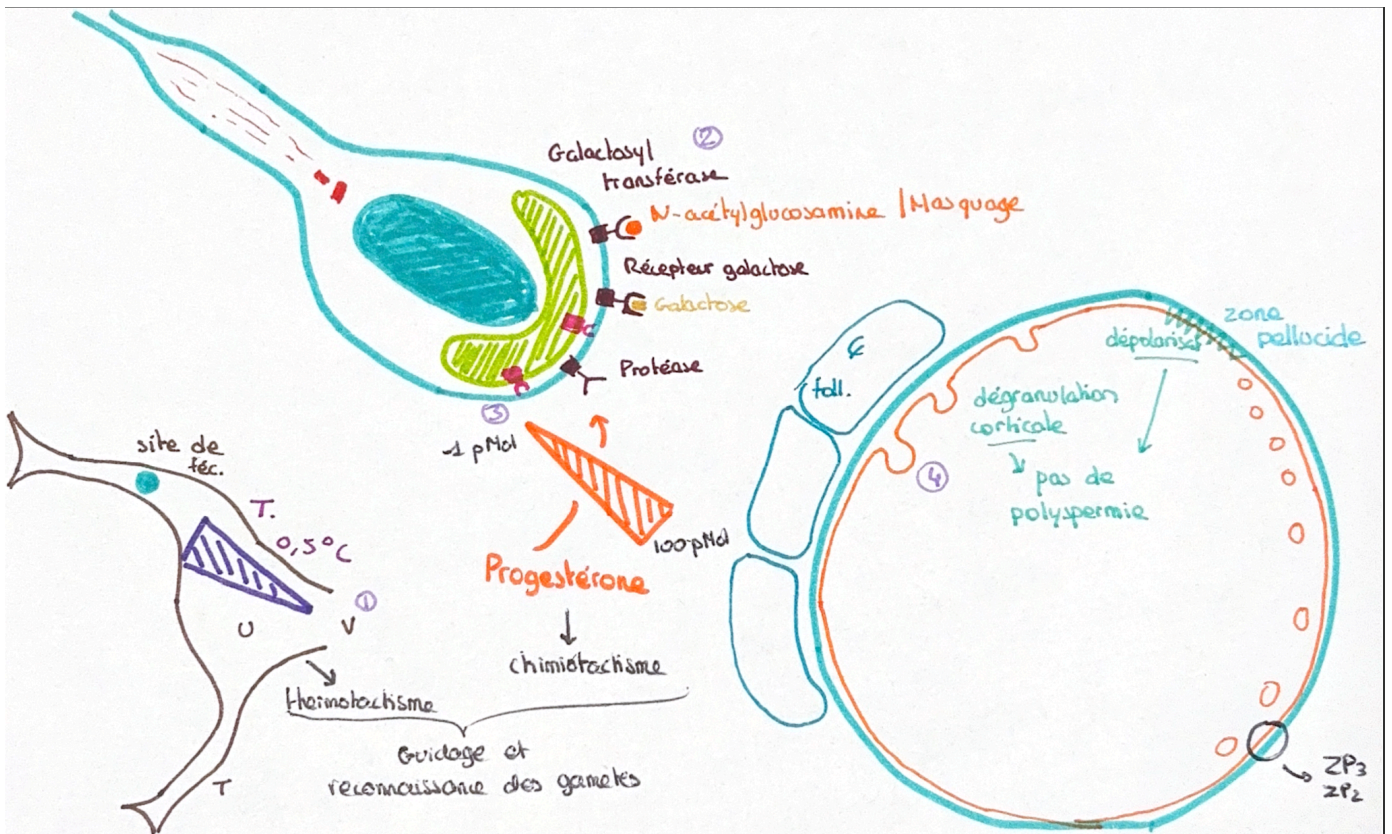 ②
Galactosyl
transférase
N-acétylglucosamine / Masquage
Récepteur galactose
Galactose
Protéase
③
1 pMol
100 pMol
Progestérone
chimiotactisme
site de
féc.
T.
0,5°C
①
U
V
T
thermotactisme
Guidage et
reconnaissance des gamètes
foll.
zone
pellucide
dépolarisat°
dégranulation
corticale
pas de
polyspermie
④
ZP3
ZP2